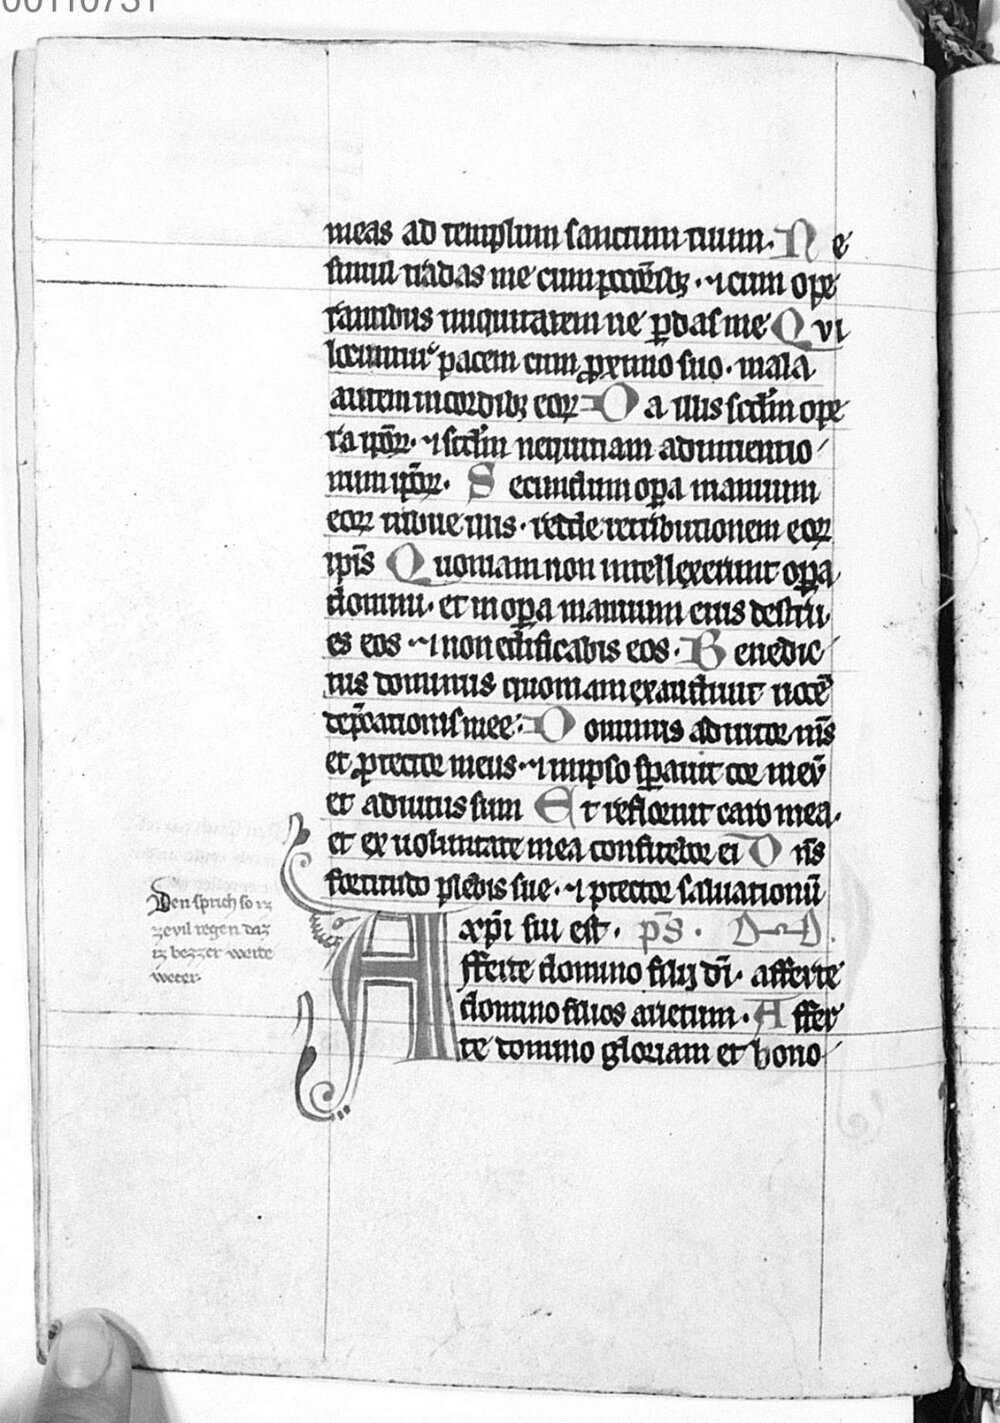 meas ad templum sanctum tuum. Ne
simul tradas me cum pctōribꝫ · ⁊ cum ope
rantibus iniquitatem ne ꝑdas me Qvi
locuntur pacem cum ꝓximo suo · mala
autem in cordibꝫ eoꝝ Da illis scd̄m ope
ra ipōꝝ · ⁊ scd̄m nequitiam adinuentio
num ipōꝝ · Secundum oꝑa manuum
eoꝝ tribue illis · redde retributionem eoꝝ
ipīs Quoniam non intellexerunt oꝑa
domini · et in oꝑa manuum eius destru
es eos ⁊ non edificabis eos · Benedic
tus dominus quoniam exaudiuit uocē
dep̄cationis mee · Dominus adiutor m̄s
et ꝓtector meus · ⁊ in ipso sꝑauit cor meū
et adiutus sum Et refloruit caro mea ·
et ex uoluntate mea confitebor ei Dn̄s
fortitudo plebis sue · ⁊ ptector saluationū
xp̄i sui est · ps̄ · D-a-D.
Afferte domino filij dī · afferte
domino filios arietum · Affer
te domino gloriam et hono
Den sprich so iz
ze vil regen daz
iz bezzer werte
weter·